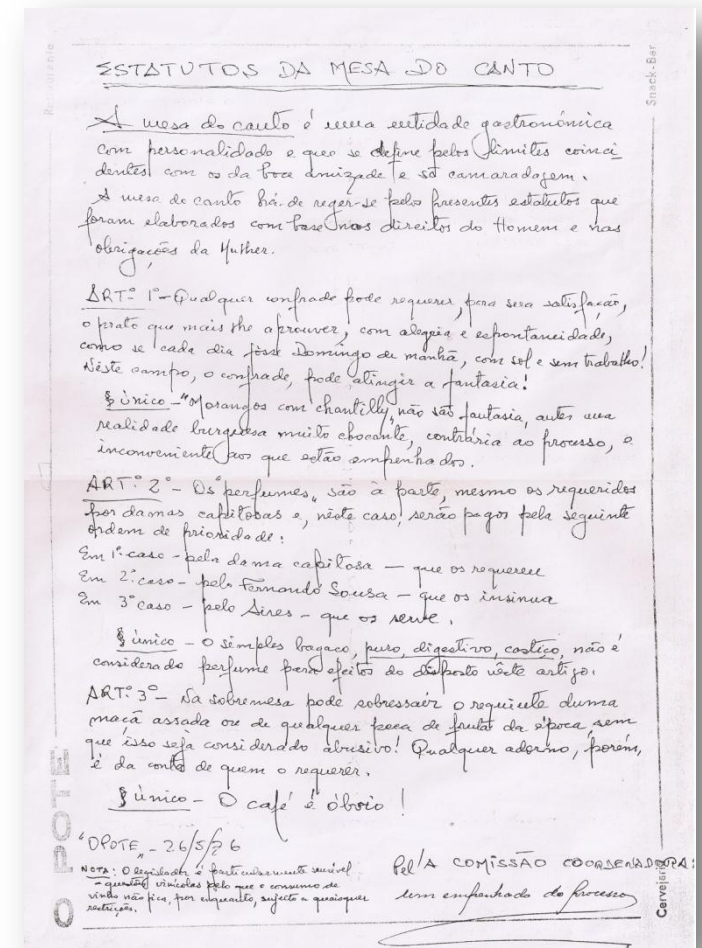 Restaurante
Snack-Bar
ESTATUTOS DA MESA DO CANTO
A mesa do canto é uma entidade gastronómica
com personalidade e que se define pelos limites coinci
dentes com os da boa amizade e sã camaradagem.
A mesa de canto há-de reger-se pelos presentes estatutos que
foram elaborados com base nos direitos do Homem e nas
obrigações da Mulher.
ART.º 1º - Qualquer confrade pode requerer, para sua satisfação,
o prato que mais lhe aprouver, com alegria e espontaneidade,
como se cada dia fôsse Domingo de manhã, com sol e sem trabalho!
Nêste campo, o confrade, pode atingir a fantasia!
§ único - "Morangos com chantilly" não são fantasia, antes uma
realidade burguesa muito chocante, contrária ao processo, e
inconveniente aos que estão empenhados.
ART.º 2º - Os "perfumes" são à parte, mesmo os requeridos
por damas capitosas e, nêste caso, serão pagos pela seguinte
ordem de prioridade:
Em 1º caso - pela dama capitosa — que os requereu
Em 2º caso - pelo Fernando Sousa - que os insinua
Em 3º caso - pelo Aires - que os serve.
§ único - O simples bagaço, puro, digestivo, castiço, não é
considerado perfume para efeitos do disposto nêste artigo.
ART.º 3º - Na sobremesa pode sobressair o requinte duma
maçã assada ou de qualquer peça de fruta da época, sem
que isso seja considerado abusivo! Qualquer adorno, porém,
é da conta de quem o requerer.
§ único - O café é óbvio!
"OPOTE" - 26/5/76
NOTA: O legislador é particularmente sensível
a questões vinícolas pelo que o consumo de
vinho não fica, por enquanto, sujeito a quaisquer
restrições.
Pel'A COMISSÃO COORDENADORA:
um empenhado do processo
O POTE
Cervejaria